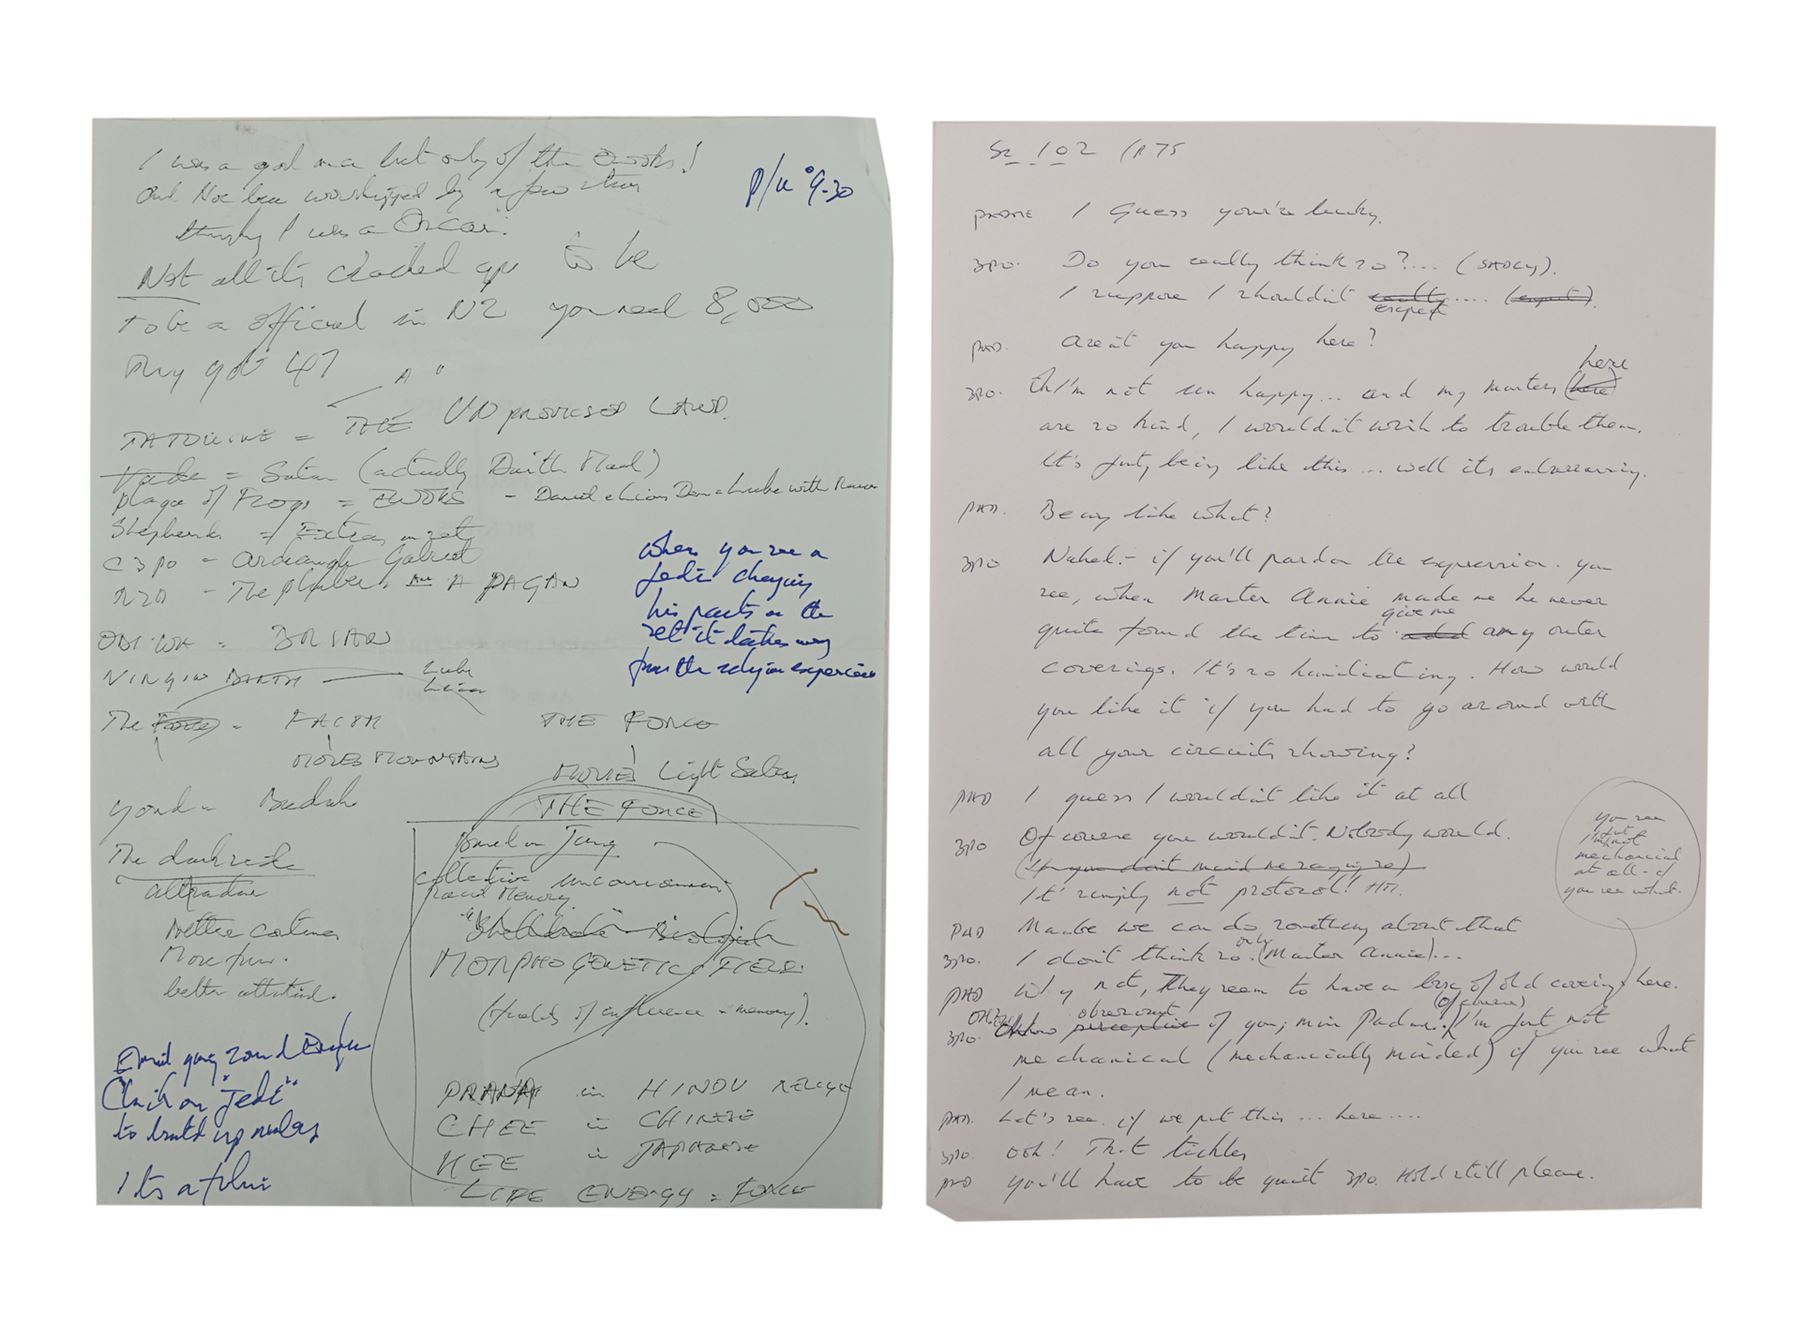 I was a god once but only of the Ewoks!
And Not been worshipped by a few
thinking I was an Oscar.
Not all it's cracked up to be
To be a official in NZ you need 8,000
They got 47
A "
TATOUINE = THE UNPROMISED LAND.
Vader = Satan (actually Darth Maul)
plague of Frogs = EWOKS - Daniel & Lions Den = Luke with
Shepherds = Extras on set
C3PO = Archangel Gabriel
R2D - The A PAGAN
OBI WAN = BRIAN
VIRGIN BIRTH Luke
Leia
The Force = FAITH THE FORCE
MOVES MOUNTAINS
MOVES Light Sabers
P/U 9-30
When you see a
Jedi changing
his pants on the
set it takes away
from the religious experience
Yoda = Buddah
The dark side
attractive
Better costumes
More fun.
better attitude.
Email going round
Claim on "Jedi"
to build up numbers
It's a film
THE FORCE
based on Jung
collective unconscious
racial Memory.
"Sheldrake" Biologist
MORPHOGENETIC FIELD.
(fields of influence - memory).
PRANA in HINDU RELIGE
CHEE in CHINESE
KEE in JAPANESE
LIFE ENERGY = FORCE
Sc 102 (P. 75
PADME I Guess you're lucky.
3PO. Do you really think so?.... (SADLY).
I suppose I shouldn't really .... (expect).
expect
PAD. Aren't you happy here?
3PO. Oh I'm not un happy... and my masters (here)
here
are so kind, I wouldn't wish to trouble them.
It's just, being like this... well its embarrassing.
PAD. Being like what?
3PO Naked - if you'll pardon the expression. You
see, when Master Annie made me he never
quite found the time to add any outer
give me
coverings. It's so humiliating. How would
you like it if you had to go around with
all your circuits showing?
PAD I guess I wouldn't like it at all
3PO Of course you wouldn't. Nobody would.
(If you don't mind me saying so)
It's simply not protocol! Hm.
you see
just
I'm not
mechanical
at all - if
you see what.
PAD Maybe we can do something about that
3PO. I don't think so. (only Master Annie)...
PAD Why not, They seem to have a box of old coverings here.
3PO. Oh how perceptive of you, miss Padme. (of course) I'm just not
observant
mechanical (mechanically minded) if you see what
I mean.
PAD. Let's see. if we put this ... here....
3PO. Ooh! That tickles
PAD You'll have to be quiet 3PO. Hold still please.